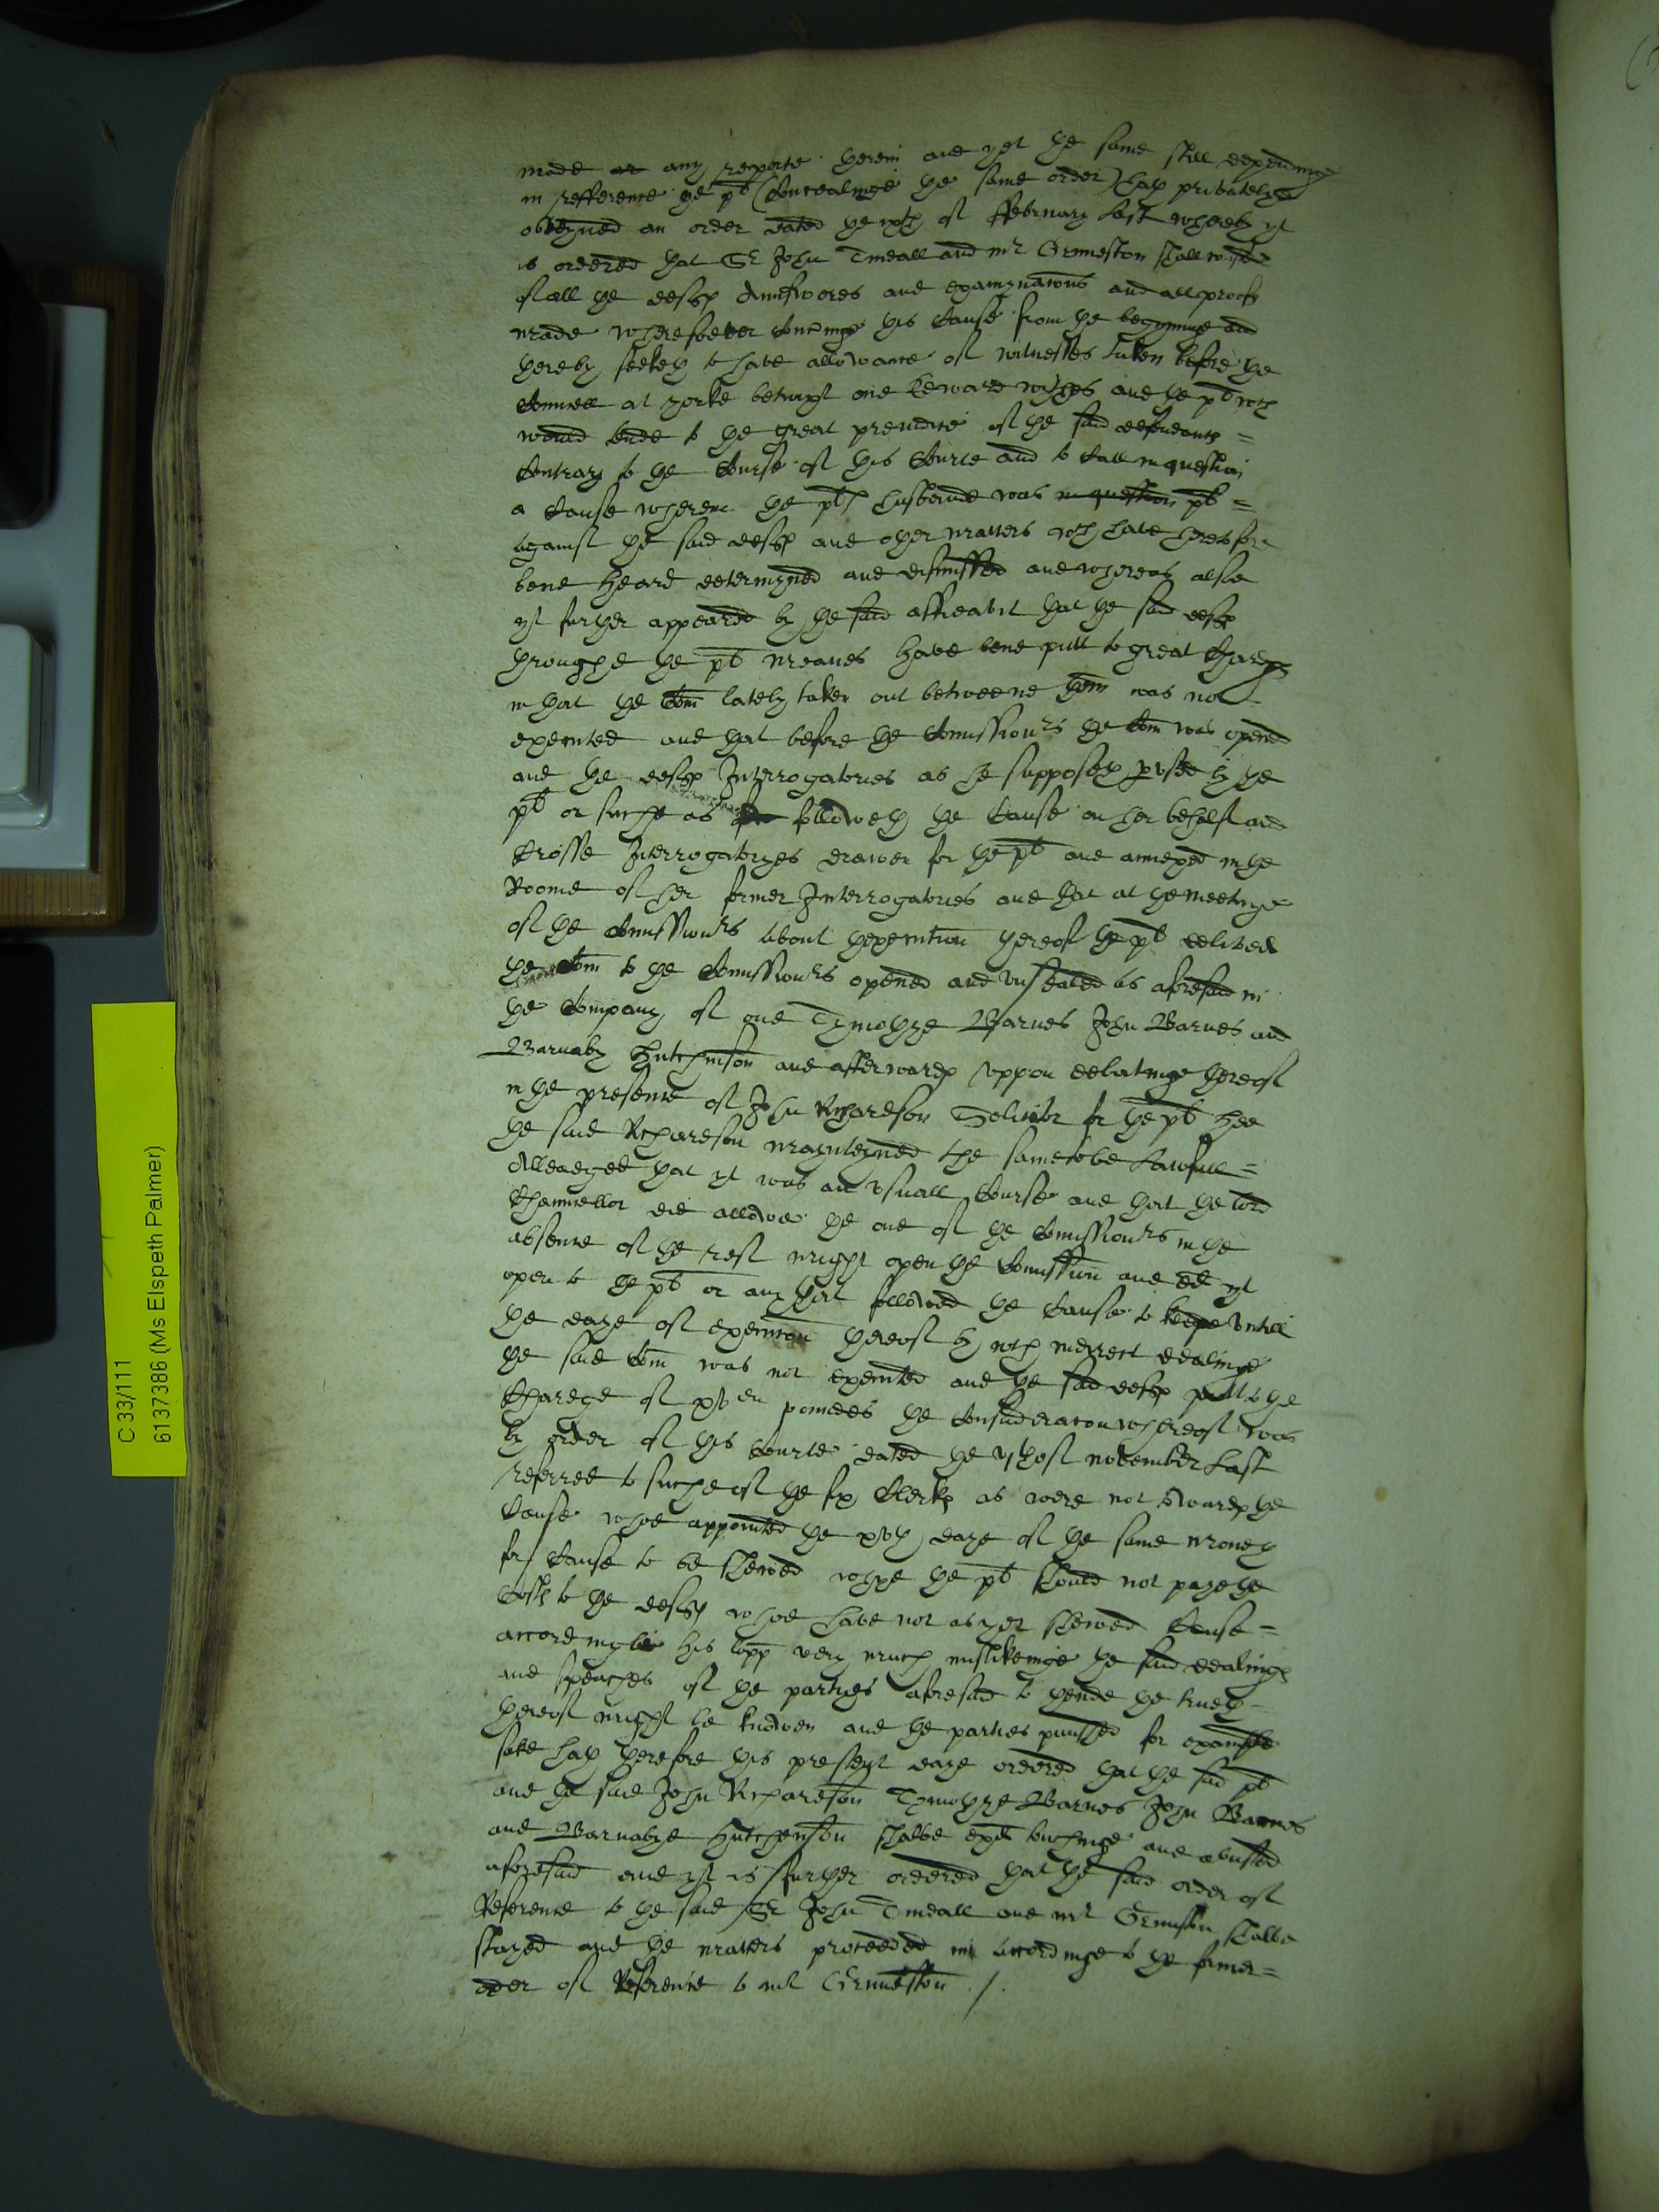 made or any reporte herein and yet the same still dependinge
in refference the plt (Concealinge the same order) hath privately
obteyned an order dated the of ffebruary last whereby yt
is ordered that Sr John Tindall and mr Grimeston shall consider
of all the deftes Aunsweres and examynacons and all proofes
made wheresoever Concerninge this Cause from the begynninge and
thereby seeketh to have allowance of witnesses taken before the
Councell at yorke betwixt one Edward and the plt wch
would tende to the great preiudice of the said defendants =
Contrary to the Course of this Courte and to Call in question
a Cause wherein the plts husband was in question plt =
against the said deftes and other matters wch have heretofore
bene heard determyned and dismissed and whereas also
yt further appeared by the said affidavit that the said deftes
throughe the plt meanes have bene putt to great Charge
in that the Com lately taken out betweene them was not
executed and that before the Comissionrs the Com was opened
and the deftes Interrogatories as he supposeth by the
plt or suche as followeth the Cause on her behalf and
Crosse Interrogatoryes drawen for the plt and annexed in the
Roome of her former Interrogatories and that at the meetinge
of the Comissionrs about thexecution thereof the plt delivered
the Com to the Comissionrs opened and unsealed as aforesaid in
the Company of one Tymothye Barnes John Barnes and
Barnaby Hutchinson and afterwards uppon debatinge thereof
in the presence of John Richardson Soliciter for the plt hee
the said Richardson maynteyned the same to be Lawfull =
Alleadged that yt was an usuall Course and that the lord
Channcellor did allowe the one of the Comissionrs in the
absence of the rest might open the Comission and yt
open to the plt or any that followed the Cause to keepe untill
the daye of execucon thereof by wch indirect dealinge
the said Com was not executed and the said deftes putt to the
Chardge of poundes the Consideracon whereof was
by order of this Courte dated the of november Last
referred to suche of the six Clerks as were not towards the
Cause whoe appointed the xvth daye of the same moneth
for Cause to be shewed whye the plt should not paye the
Costs to the deftes whoe have not as yet shewed Cause =
accordinglie his lopp very much mislikeinge the said dealings
and speaches of the partyes aforesaid to thende the trueth
thereof might be knowen and the parties punished for example
sake hath therefore this present daye ordered that the said plt
and the said John Richardson Tymothye Barnes John Barnes
and Barnabye Hutchenson shalbe exd touchinge and abused
aforesaid and yt is further ordered that the said order of
Reference to the said Sr John Tindall and mr Grimeston shalbe
stayed and the matters proceeded in accordinge to the former =
order of Reference to mr Grimeston /.
C 33/111
6137386 (Ms Elspeth Palmer)